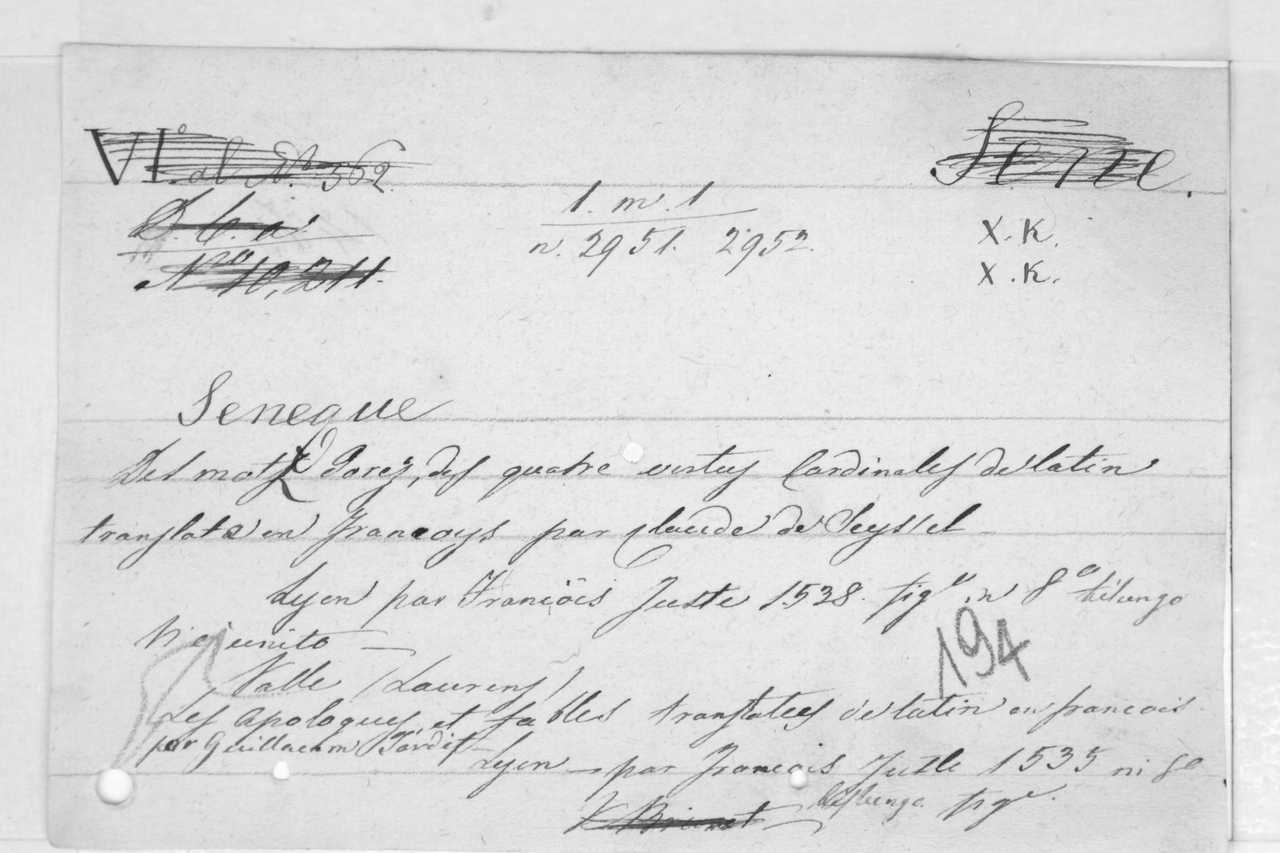 VI.° al N.° 562.
Sene.
D. C. a
1. m. 1
X. K.
n. 2951. 2952.
N.ro 10,211.
X. K.
Seneque
Des motz Dorez, des quatre vertus Cardinales de latin
translatè en Françoys par Claude de Seyssel
Lyon par François Juste 1538. fig.e in 8.o bislungo
Vi è unito
194
Valle (Laurens)
Les apologues, et fables translatees de latin en francois
par Guillaeum Tardif Lyon par Francois Juste 1535 in 8.o
bislungo fig.e
V. Brunet